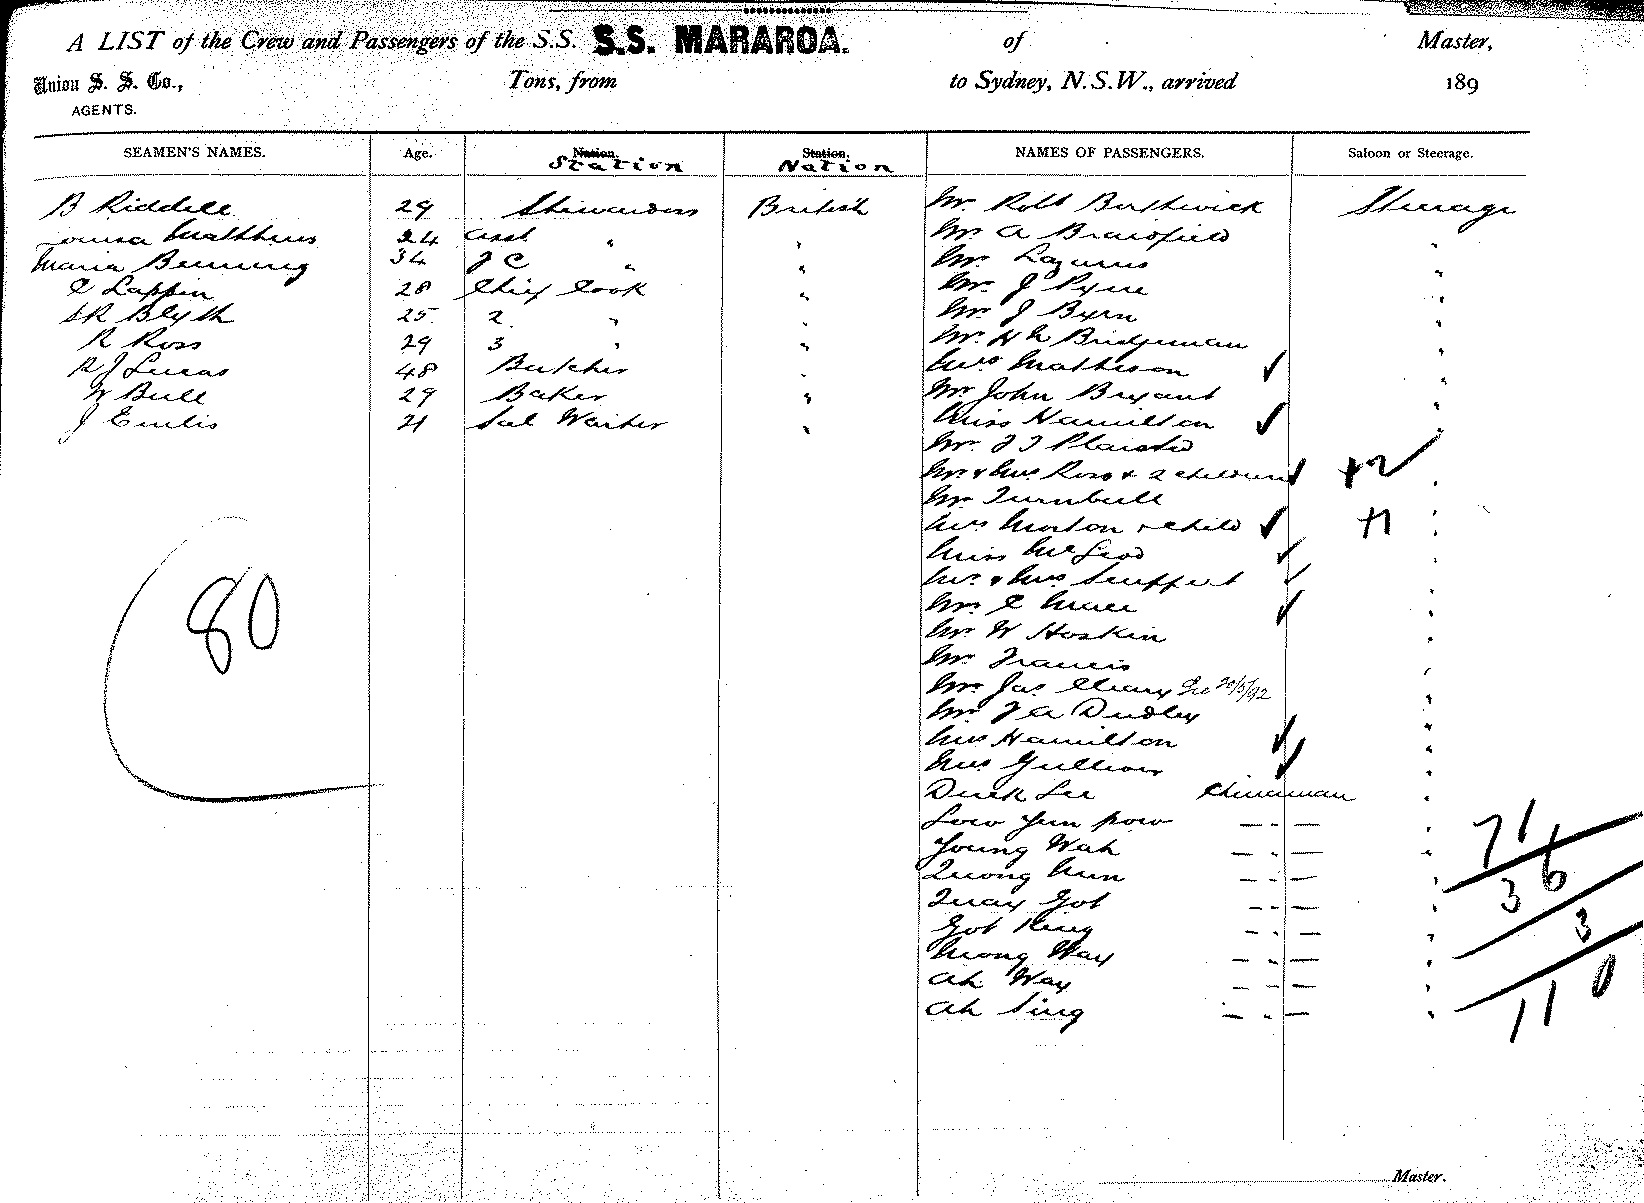 A LIST of the Crew and Passengers of the S.S. S.S. MARAROA. of Master,
Union S. S. Co., Tons, from to Sydney, N.S.W., arrived 189
AGENTS.
SEAMEN'S NAMES. Age. Nation. Station. NAMES OF PASSENGERS. Saloon or Steerage.
Station Nation
B Riddell 29 Stewardess British Mr Robt Borthwick Steerage
Louisa Matthews 24 asst " " Mr A Bransfield "
Maria Benning 34 J C " " Mr Lazarus "
C Lappin 28 Chief Cook " Mr J Pyne "
SR Blyth 25 2 " " Mr J Byrn "
R Ross 29 3 " " Mr H M Bridgeman "
R J Lucas 48 Butcher " Mrs Matheson "
W Bull 29 Baker " Mr John Bryant "
J Emlis 21 Sal Waiter " Miss Hamilton "
Mr J J Plaisted
Mr & Mrs Ross & 2 children +2 "
Mr Turnbull "
Mrs Morton & child +1 "
Miss McLeod "
Mr & Mrs Seuffert "
Mr C "
Mr W Hoskin "
Mr Francis "
Mr Jas Cleary 20/5/92 "
Mr J A Dudley "
Mrs Hamilton "
Mrs Gulliver "
Duck Lee Chinaman "
Low Yun pow — " — "
Young Wah — " — "
Quong Mun — " — "
Quay Got — " — "
Got King — " — "
Mong Way — " — "
Ah Way — " — "
Ah Sing — " — "
80
71
6
3
3
11 0
Master.